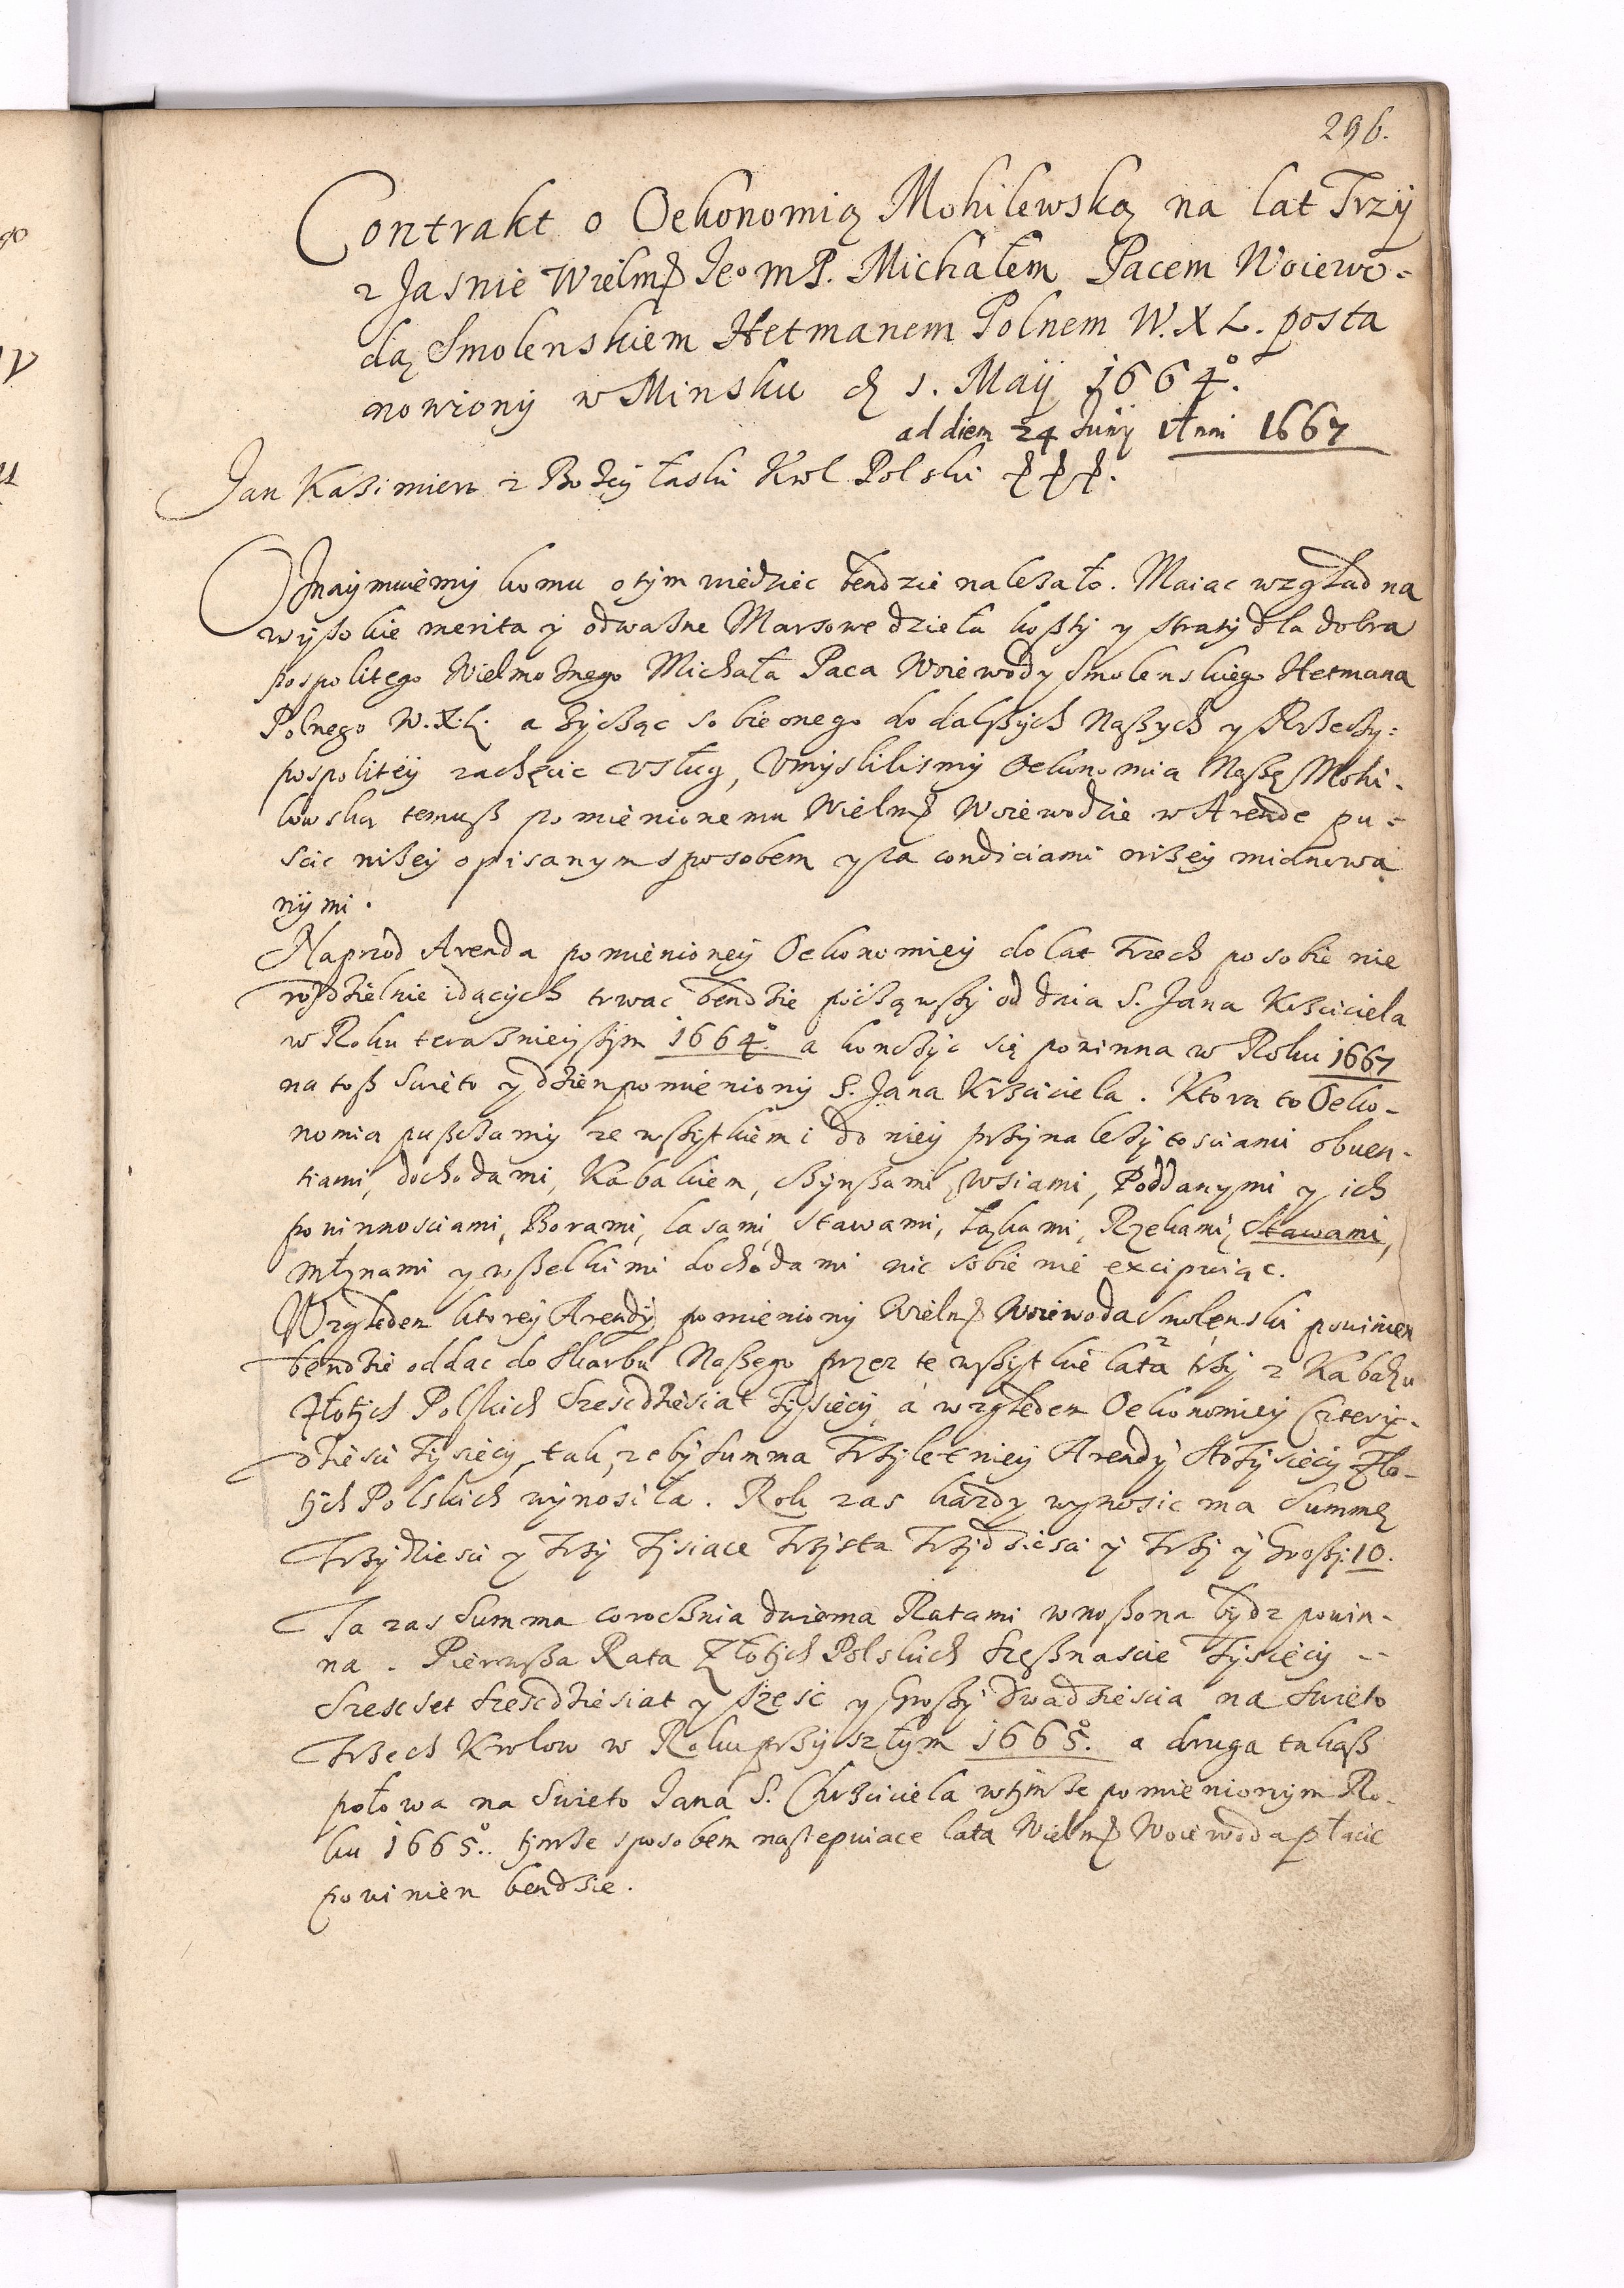 296.
Contrakt o Oekonomią Mohilewską na lat Trzÿ
z Jasnie Wielmꝫ Jeo mP. Michałem Pacem Woiewo=
dą Smolenskiem Hetmanem Polnem W. X L. posta
nowionÿ w Minsku d 1. Maÿ 1664°.
ad diem 24 Junÿ Anni 1667
Jan Kaźimierz z Bożeÿ łaski Krol Polski
Oznaÿmuiemÿ komu o tÿm wiedziec bendzie należało. Maiac wzgląd na
wÿsokie merita ÿ odważne Marsowe dzieła koßtÿ y stratÿ dla dobra
pospolitego Wielmożnego Michała Paca Woiewody Smolenskiego Hetmana
Polnego W. X. L. a życżąc sobie onego do dalßÿch Naßych y Rżecżÿ=
pospoliteÿ zachęcic vsług, Vmÿslilismÿ Oekonomia Naßą Mohi-
lowską temuß pomienionemu Wielmꝫ Woiewodzie w Arende pu=
scic niżeÿ opisanym sposobem y za condiciami niżeÿ mianowa
nÿmi.
Naprzod Arenda pomienioneÿ Oekonomieÿ do lat trzech po sobie nie
rozdżielnie idącÿch trwac bendżie pocżąwßÿ od dnia S. Jana Krżciciela
w Roku terażnieÿßÿm 1664°. a koncżÿc się powinna w Roku 1667
na toß Swięto ÿ dżien pomienionÿ S. Jana Krżciciela. Ktora to Oeko-
nomia pußcżamÿ ze wßÿtkiemi do nieÿ prżÿnależÿtosciami obuen-
tiami, dochodami, Kabakiem, cżÿnßami, wsiami, Poddanymi y ich
powinnosciami, Borami, lasami, stawami, łąkami, Rzekami, Stawami,
młynami y wßelkimi dochodami nic sobie nie excipuiąc.
Wzglęḍem ktoreÿ Arendÿ pomienionÿ Wielmꝫ Woiewoda Smolenski powinien
bendżie oddac do skarbu Naßego przez te wßÿtkie lata trżÿ z Kabaku
Złotÿch Polskich Szescdżiesiat Tÿsięcÿ, a względem Oekonomieÿ Czterÿ-
dżiesci Tÿsięcÿ, tak, zebÿ summa Trżÿletnieÿ Arendÿ Sto Tÿsięcÿ Zło-
tÿch Polskich wÿnosiła. Rok zas każdy wynosic ma Summę
Trżÿdziesci y Trżÿ Tÿsiace Trżÿsta Trżÿdżiesci ÿ Trżÿ ÿ Großÿ 10.
Ta zas Summa corocżnia dwiema Ratami wnoßona bÿdz powin-
na. Pierwßa Rata Złotÿch Polskich Szeßnascie Tÿsięcÿ --
Szescset Szescdżiesiat y szesc y Großÿ dwadżiescia na Swieto
Trżech Krolow w Roku prżÿszłÿm 1665°. a druga takaß
połowa na Swieto Jana S. Chrżciciela w tÿmże pomienionÿm Ro-
ku 1665°. tÿmże sposobem nastepuiace lata Wielmꝫ Woiewoda płacic
powinien bendżie.